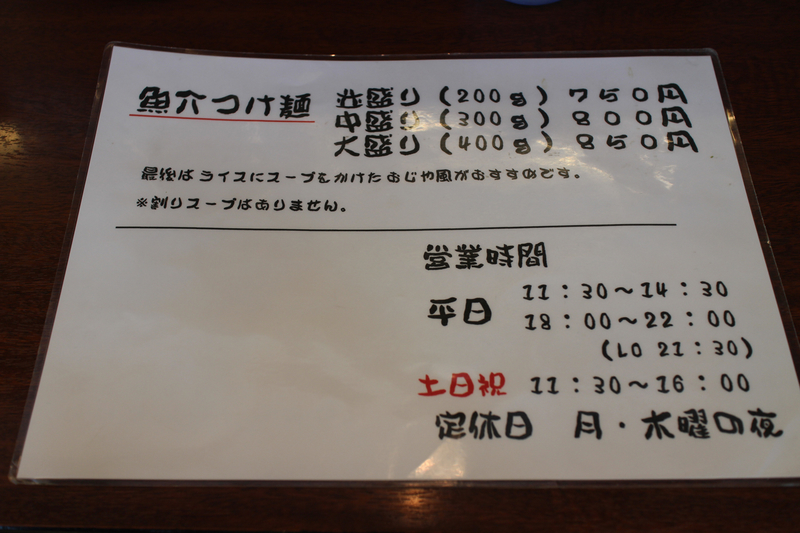 魚介つけ麺 並盛り(200g)750円
中盛り(300g)800円
大盛り(400g)850円
最後はライスにスープをかけたおじや風がおすすめです。
※割りスープはありません。
営業時間
平日 11:30〜14:30
18:00〜22:00
(LO 21:30)
土日祝 11:30〜16:00
定休日 月・木曜の夜